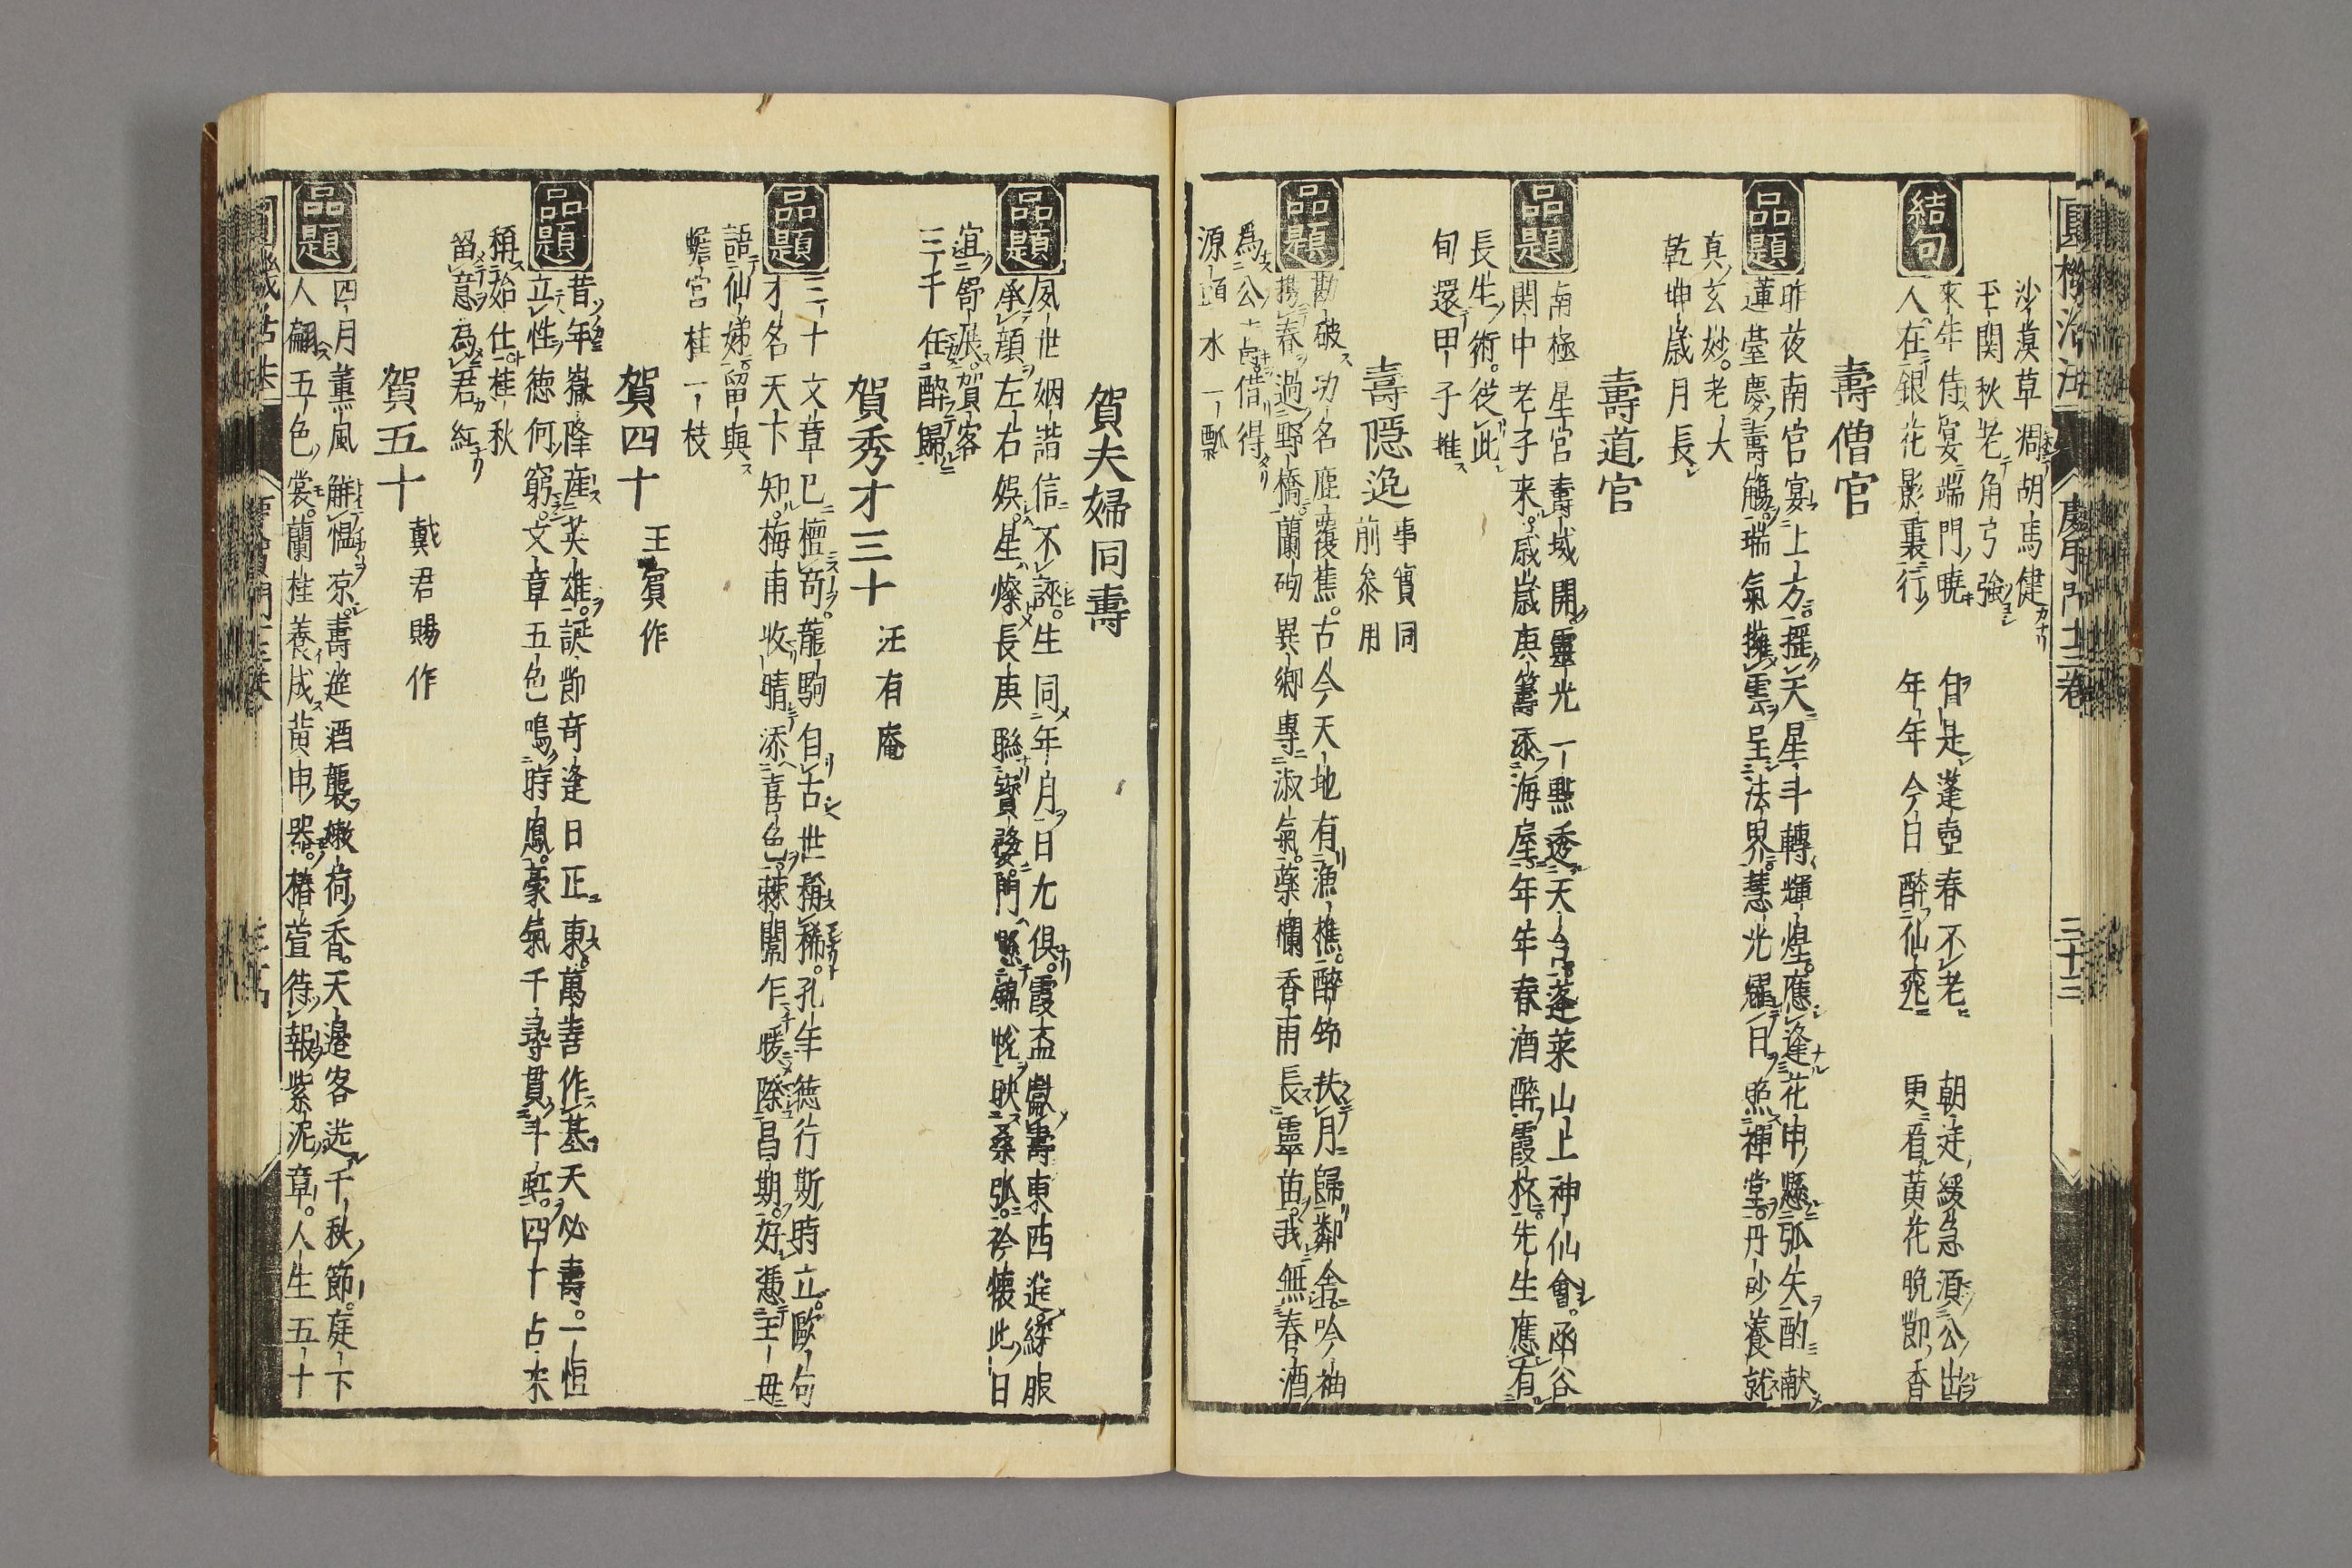 沙漠草凋胡馬健
玉関秋老角弓強
結句
來年侍宴端門曉
自是蓬壺春不老
朝廷緩急須公出
人在銀花影裏行
年年今日醉仙桃
更看黄花晩節香
壽僧官
品題
昨夜南宮宴上方揺天星斗轉輝煌應逢花申懸弧矢酌献
蓮臺慶壽觴瑞氣擁雲呈法界慧光耀日照禅堂丹砂養就
真玄妙老大
乾坤歳月長
壽道官
品題
南極星宮壽域開靈光一點透天台蓬莱山上神仙會函谷
関中老子来歳歳庚籌添海屋年年春酒醉霞杯先生應有
長生術従此
旬還甲子推
壽隠逸
事實同
前參用
品題
勘破功名鹿覆蕉古今天地有漁樵醉節扶月歸鄰舎吟袖
携春過野橋蘭砌異郷專淑氣藥欄香雨長靈苗我無春酒
為公壽借得
源頭水一瓢
賀夫婦同壽
品題
夙世姻諧信不誣生同年月日尤倶霞盃獻壽東西進綵服
承顔左右娯星燦長庚聯寳婺門懸錦帨映桑弧衿懐此日
宜舒展賀客
三千任醉歸
賀秀才三十
汪有庵
品題
三十文章已擅奇龍駒自古世稱稀孔年徳行斯時立歐句
才名天下知梅雨收晴添喜色棘闈乍暖際昌期好憑王母
語仙娣留與
蟾宮桂一枝
賀四十
王賓作
品題
昔年嶽降産英雄誕節奇逢日正東萬善作基天必壽一恒
立性徳何窮文章五色鳴時鳳豪氣千尋貫斗虹四十占來
稱始仕桂秋
留意為君紅
賀五十
戴君賜作
品題
四月薫風觧愠凉壽筵酒襲嫩荷香天邉客送千秋節庭下
人翩五色裳蘭桂養成黄申器椿萱待報紫泥章人生五十